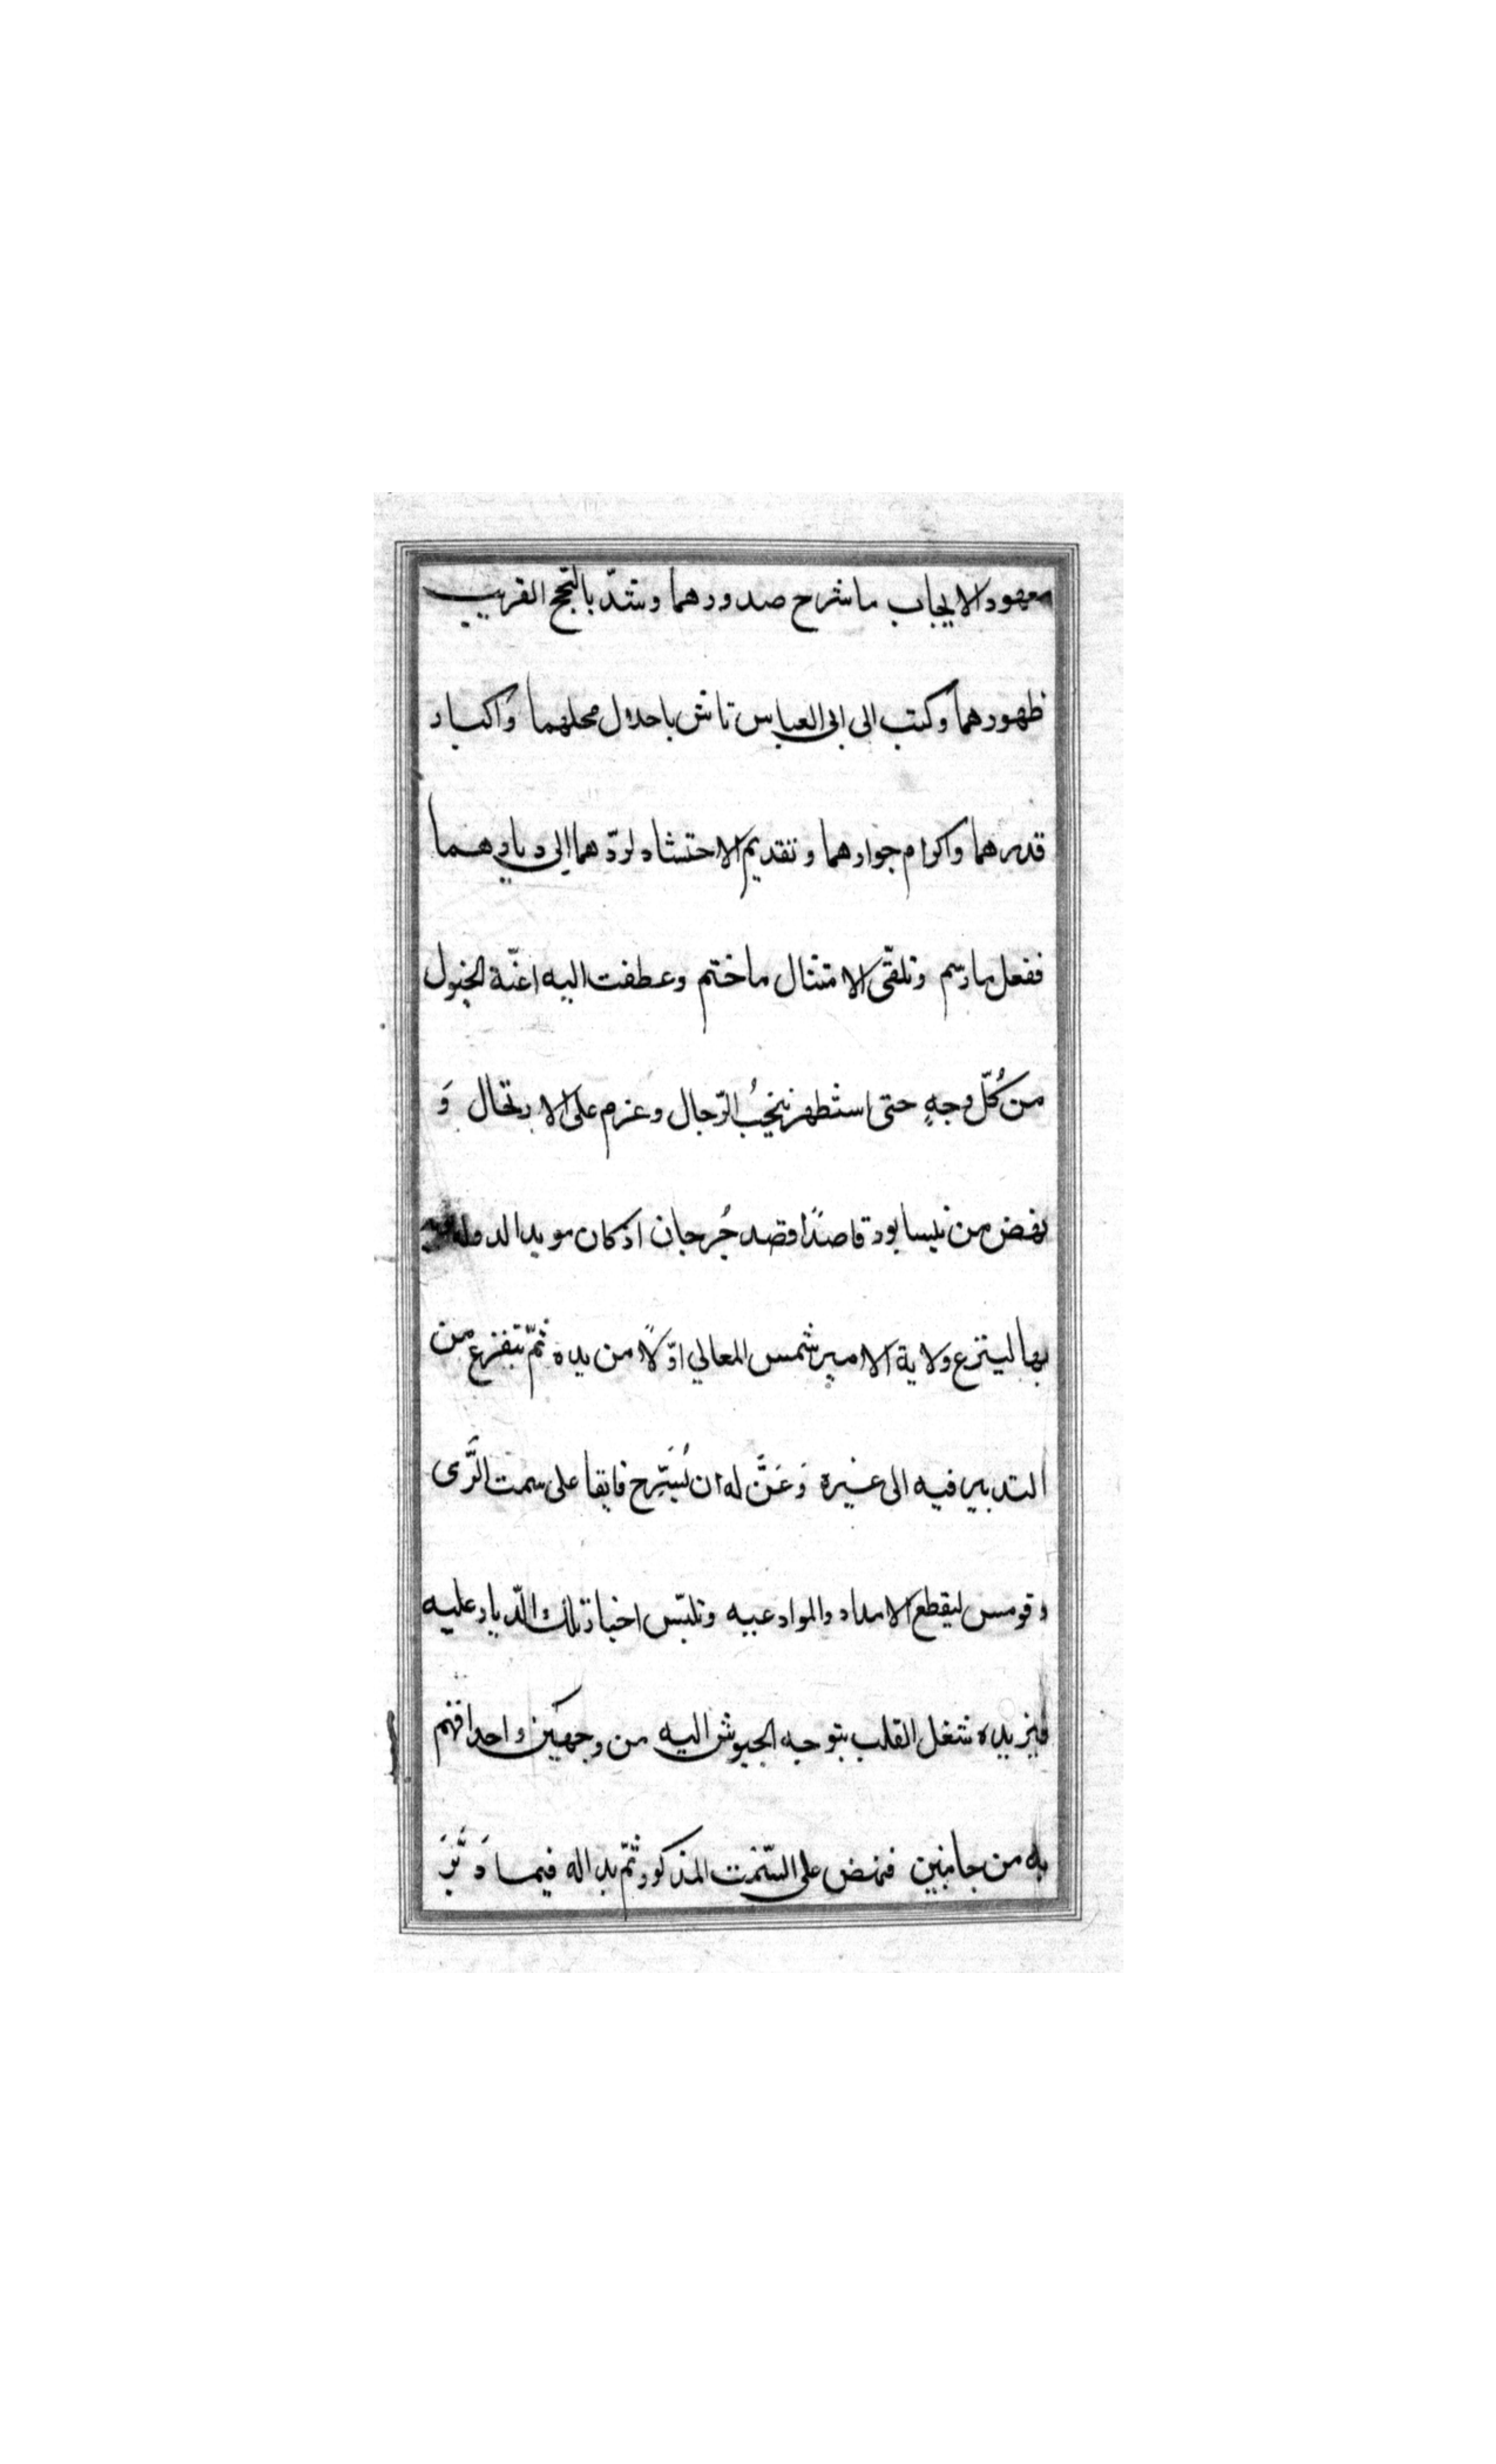 معهود الايجاب ما شرح صدورهما وشدّ بالنجح القريب
ظهورهما وكتب الى ابى العباس تاش باجلال محلهما واكبار
قدرهما واكرام جوارهما وتقديم الاحتشاد لردّهما إلى ديارهما
ففعل ما رسم وتلقّى الامتثال ما ختم وعطفت اليه اعنّة الخيول
من كُلّ وجهٍ حتى استظهر بنخبُ الرّجال وعزم على الارتحال وَ
نهض من نيسابور قاصدًا قصد جُرجان اذ كان مويد الدولة
بها لينتزع ولاية الامير شمس المعالي اوّلًا من يده ثمّ يتفرغ من
التدبير فيه الى غيره وَعَنَّ له ان يُسَرِّح فايقا على سمت الرَّى
وقومس ليقطع الامداد والمواد عنه وتلبّس اخبار تلك الدّيار عليه
فيزيده شغل القلب بتوجه الجيوش اليه من وجهين واحداقهم
به من جانبين فنهض على السّمت المذكور ثمّ بدا له فيما دَبَّرَ